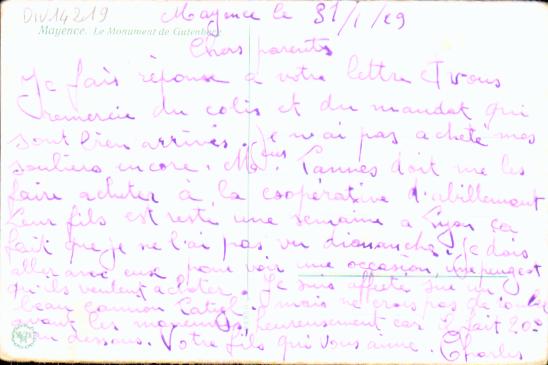 Div14219
Mayence le 31/1/29
Mayence. Le Monument de Gutenberg
Chers parents
Je fais réponse à votre lettre et vous
remercie du colis et du mandat qui
sont bien arrivés. Je n'ai pas acheté mes
souliers encore. Pannès doit me les
faire acheter à la coopérative d'abillement
Leur fils est resté une semaine à Lyon ça
fait que je ne l'ai pas vu dimanche. Je dois
aller avec eux pour voir une occasion, une peugeot
qu'ils veulent acheter. Je suis affecté sur un
beau camion mais ne crois pas de rouler
avant les heureusement car il fait 20°
en dessous. Votre fils qui vous aime. Charles